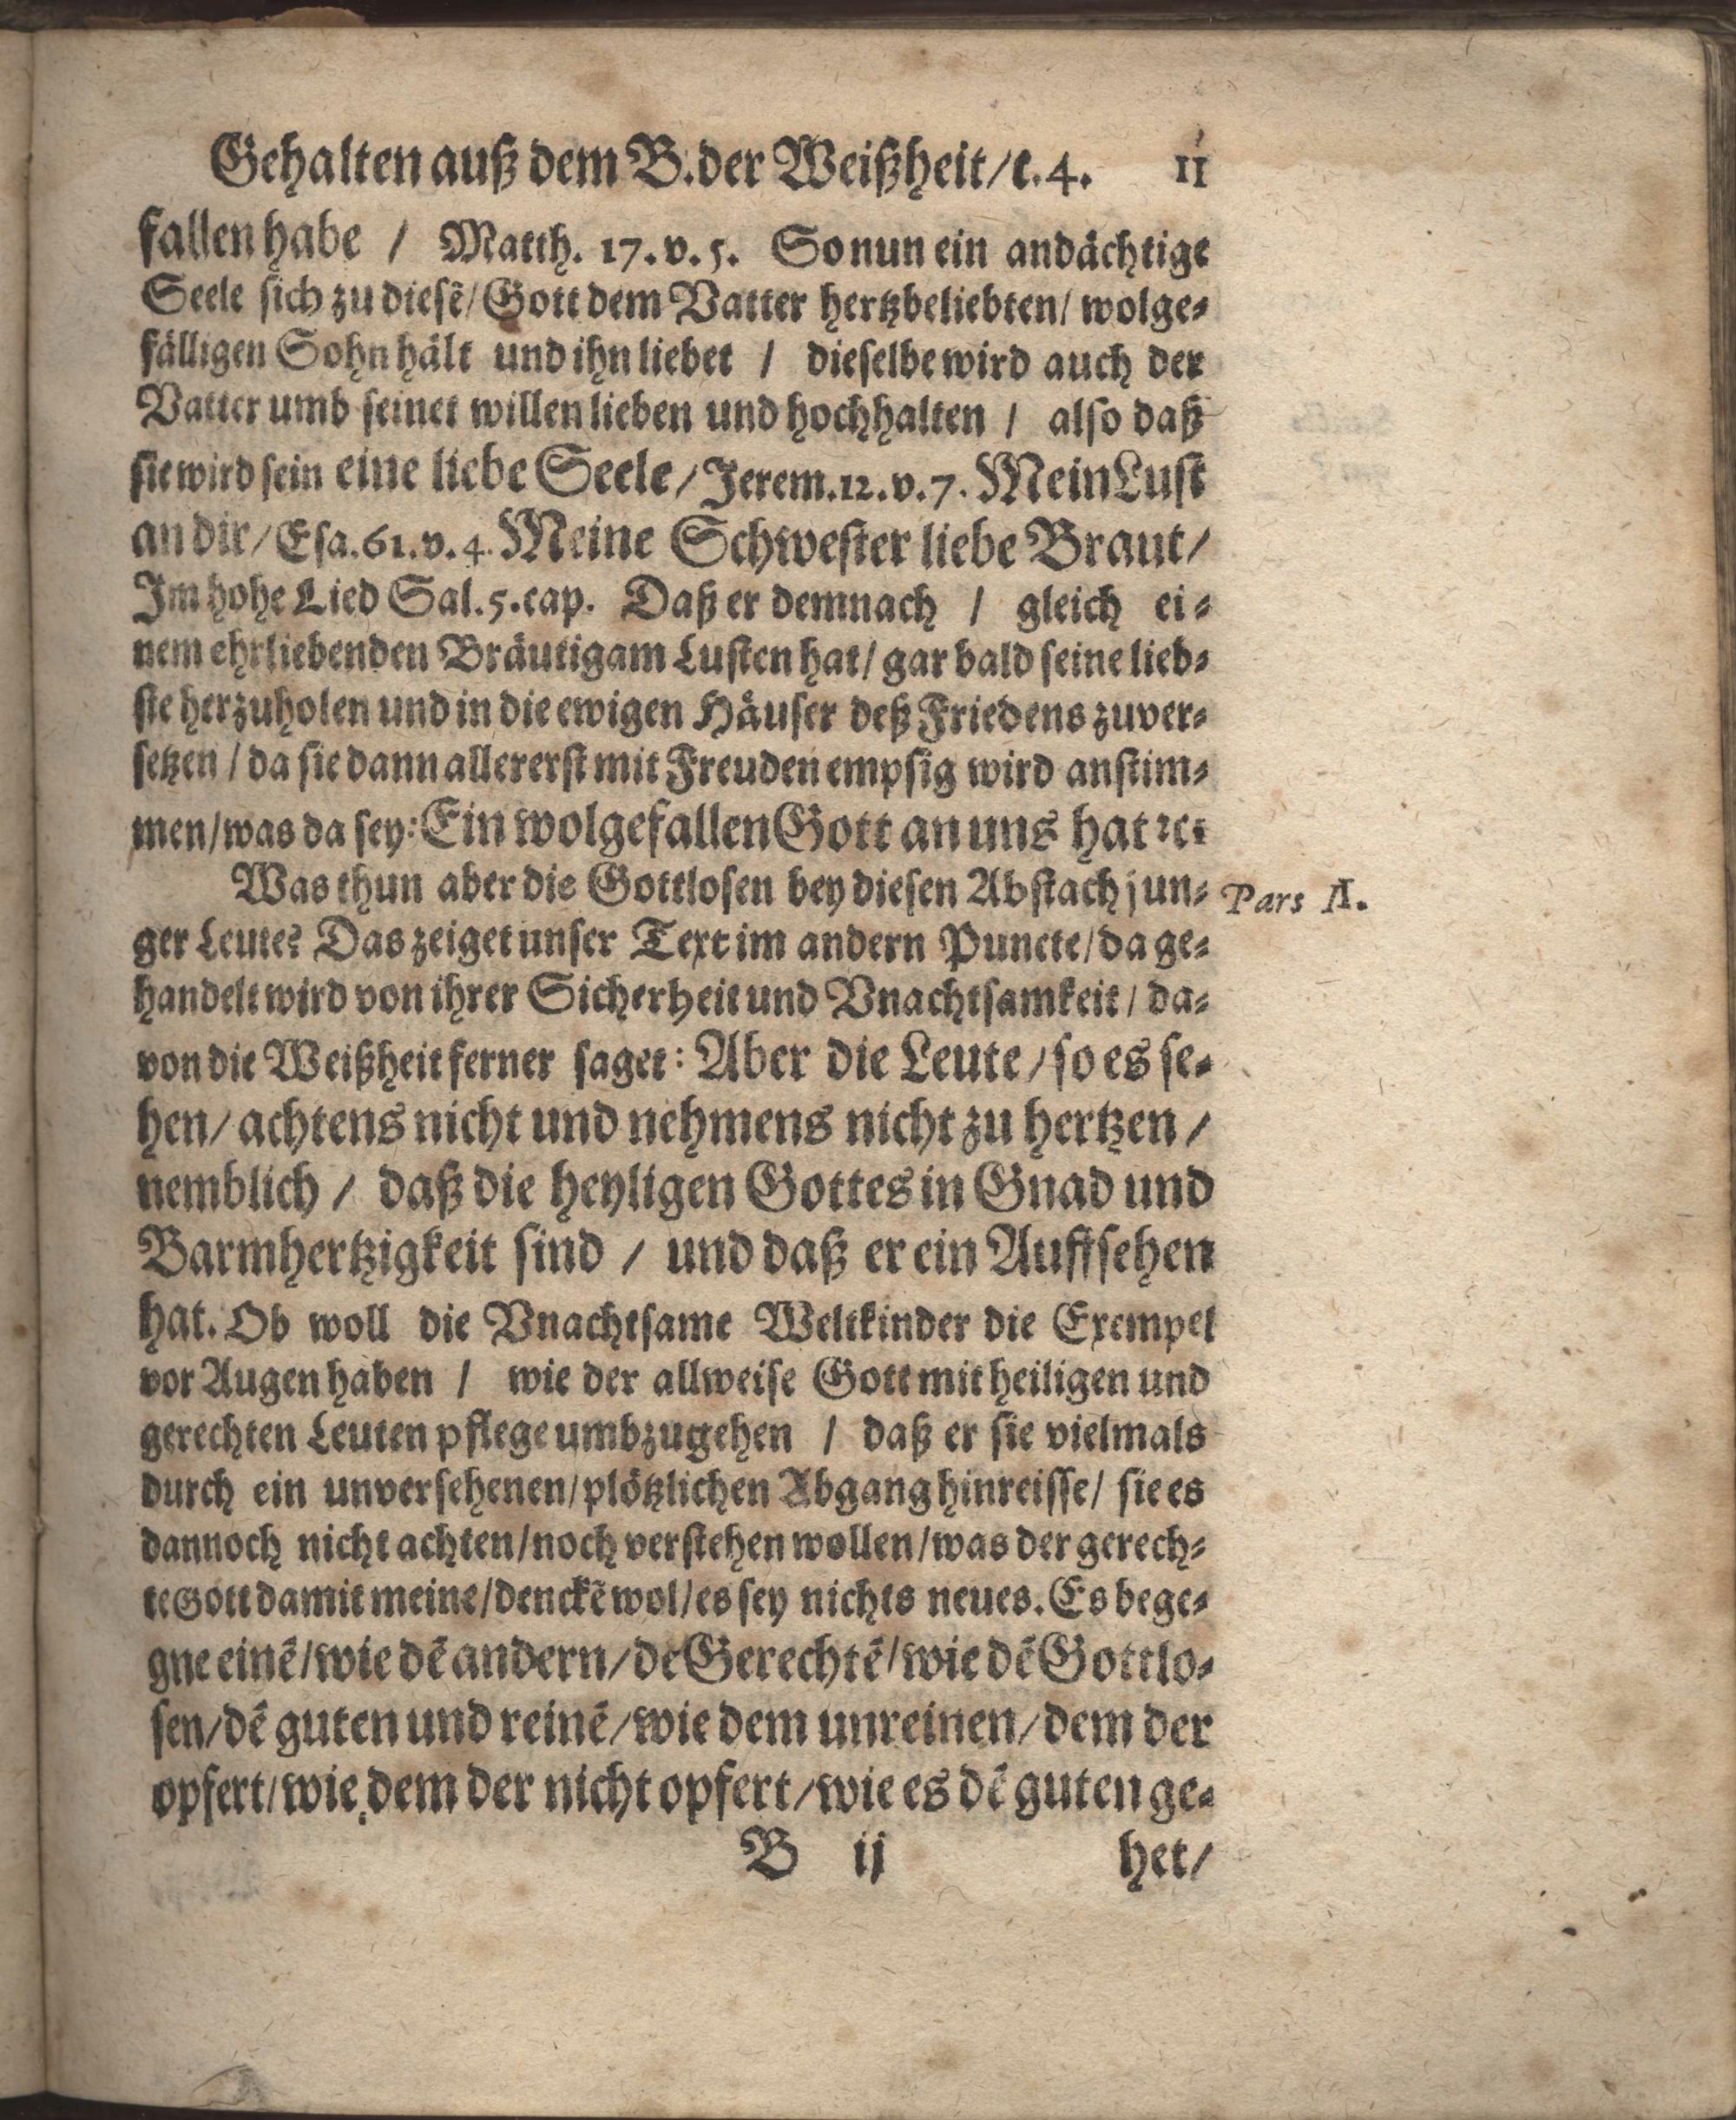 Gehalten auß dem B. der Weißheit/c. 4. 11
fallen habe / Matth. 17. v. 5. So nun ein andächtige
Seele sich zu diesẽ/ Gott dem Vatter hertzbeliebten/ wolge-
fälligen Sohn hält und ihn liebet / dieselbe wird auch der
Vatter umb seinet willen lieben und hochhalten / also daß
sie wird sein eine liebe Seele/ Jerem. 12. v. 7. Mein Lust
an dir/ Esa. 61. v. 4. Meine Schwester liebe Braut/
Im hohe Lied Sal. 5. cap. Daß er demnach / gleich ei-
nem ehrliebenden Bräutigam Lusten hat/ gar bald seine lieb-
ste herzuholen und in die ewigen Häuser deß Friedens zuver-
setzen / da sie dann allererst mit Freuden empsig wird anstim-
men/ was da sey: Ein wolgefallen Gott an uns hat ꝛc.
Was thun aber die Gottlosen bey diesen Abstach jun- Pars II.
ger Leute? Das zeiget unser Text im andern Puncte/ da ge-
handelt wird von ihrer Sicherheit und Vnachtsamkeit / da-
von die Weißheit ferner saget: Aber die Leute/ so es se-
hen/ achtens nicht und nehmens nicht zu hertzen /
nemblich / daß die heyligen Gottes in Gnad und
Barmhertzigkeit sind / und daß er ein Auffsehen
hat. Ob woll die Vnachtsame Weltkinder die Exempel
vor Augen haben / wie der allweise Gott mit heiligen und
gerechten Leuten pflege umbzugehen / daß er sie vielmals
durch ein unversehenen/ plötzlichen Abgang hinreisse/ sie es
dannoch nicht achten/ noch verstehen wollen/ was der gerech-
te Gott damit meine/ denckẽ wol/ es sey nichts neues. Es bege-
gne einẽ/ wie dẽ andern/ de Gerechtẽ/ wie dẽ Gottlo-
sen/ dẽ guten und reinẽ/ wie dem unreinen/ dem der
opfert/ wie dem der nicht opfert/ wie es dẽ guten ge-
B ij het/